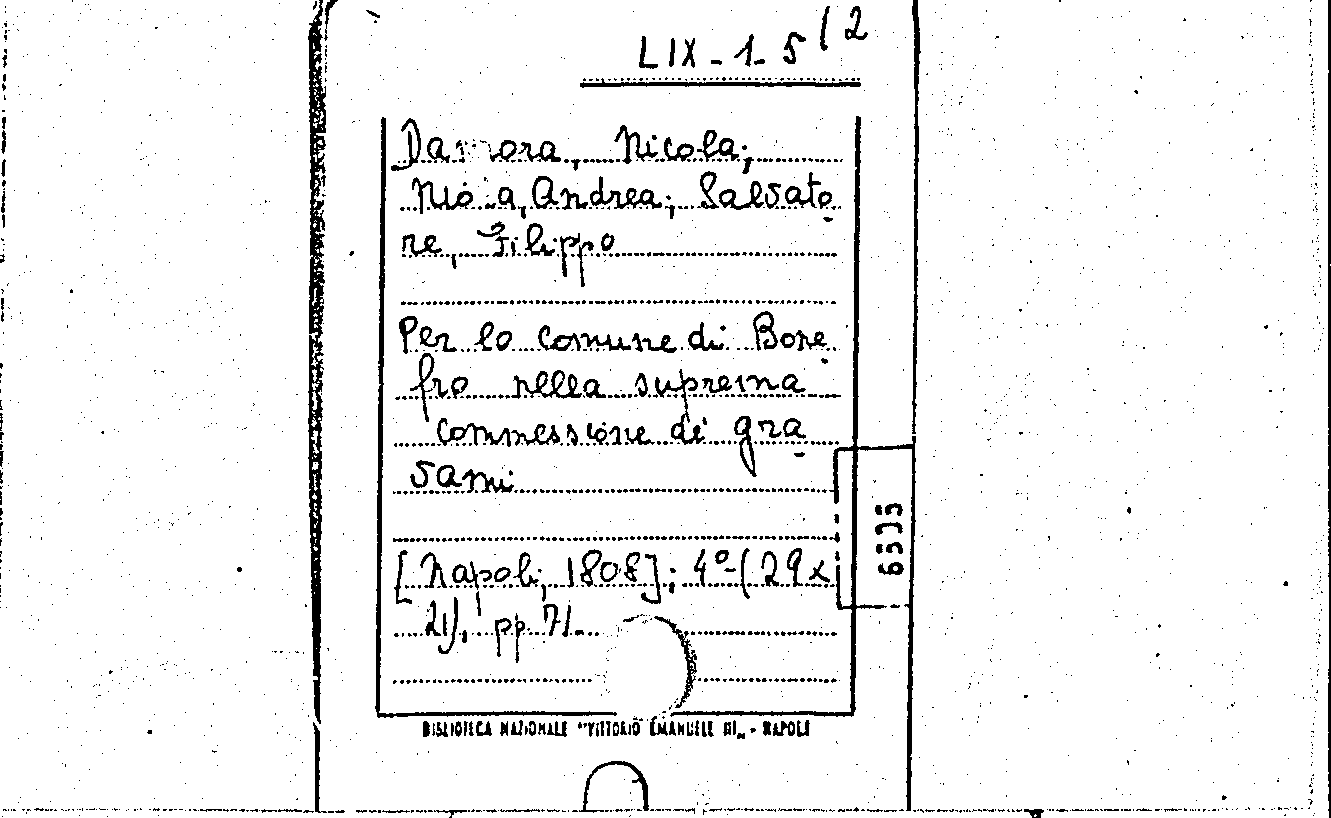 LIX-1-5/2
Damora, Nicola;
Andrea; Salvato
re, Filippo
Per lo comune di Bone
fro nella suprema
commessione di gra
vami
[Napoli, 1808]; 4°-(29x
21), pp. 71.
BIBLIOTECA NAZIONALE "VITTORIO EMANUELE III" - NAPOLI